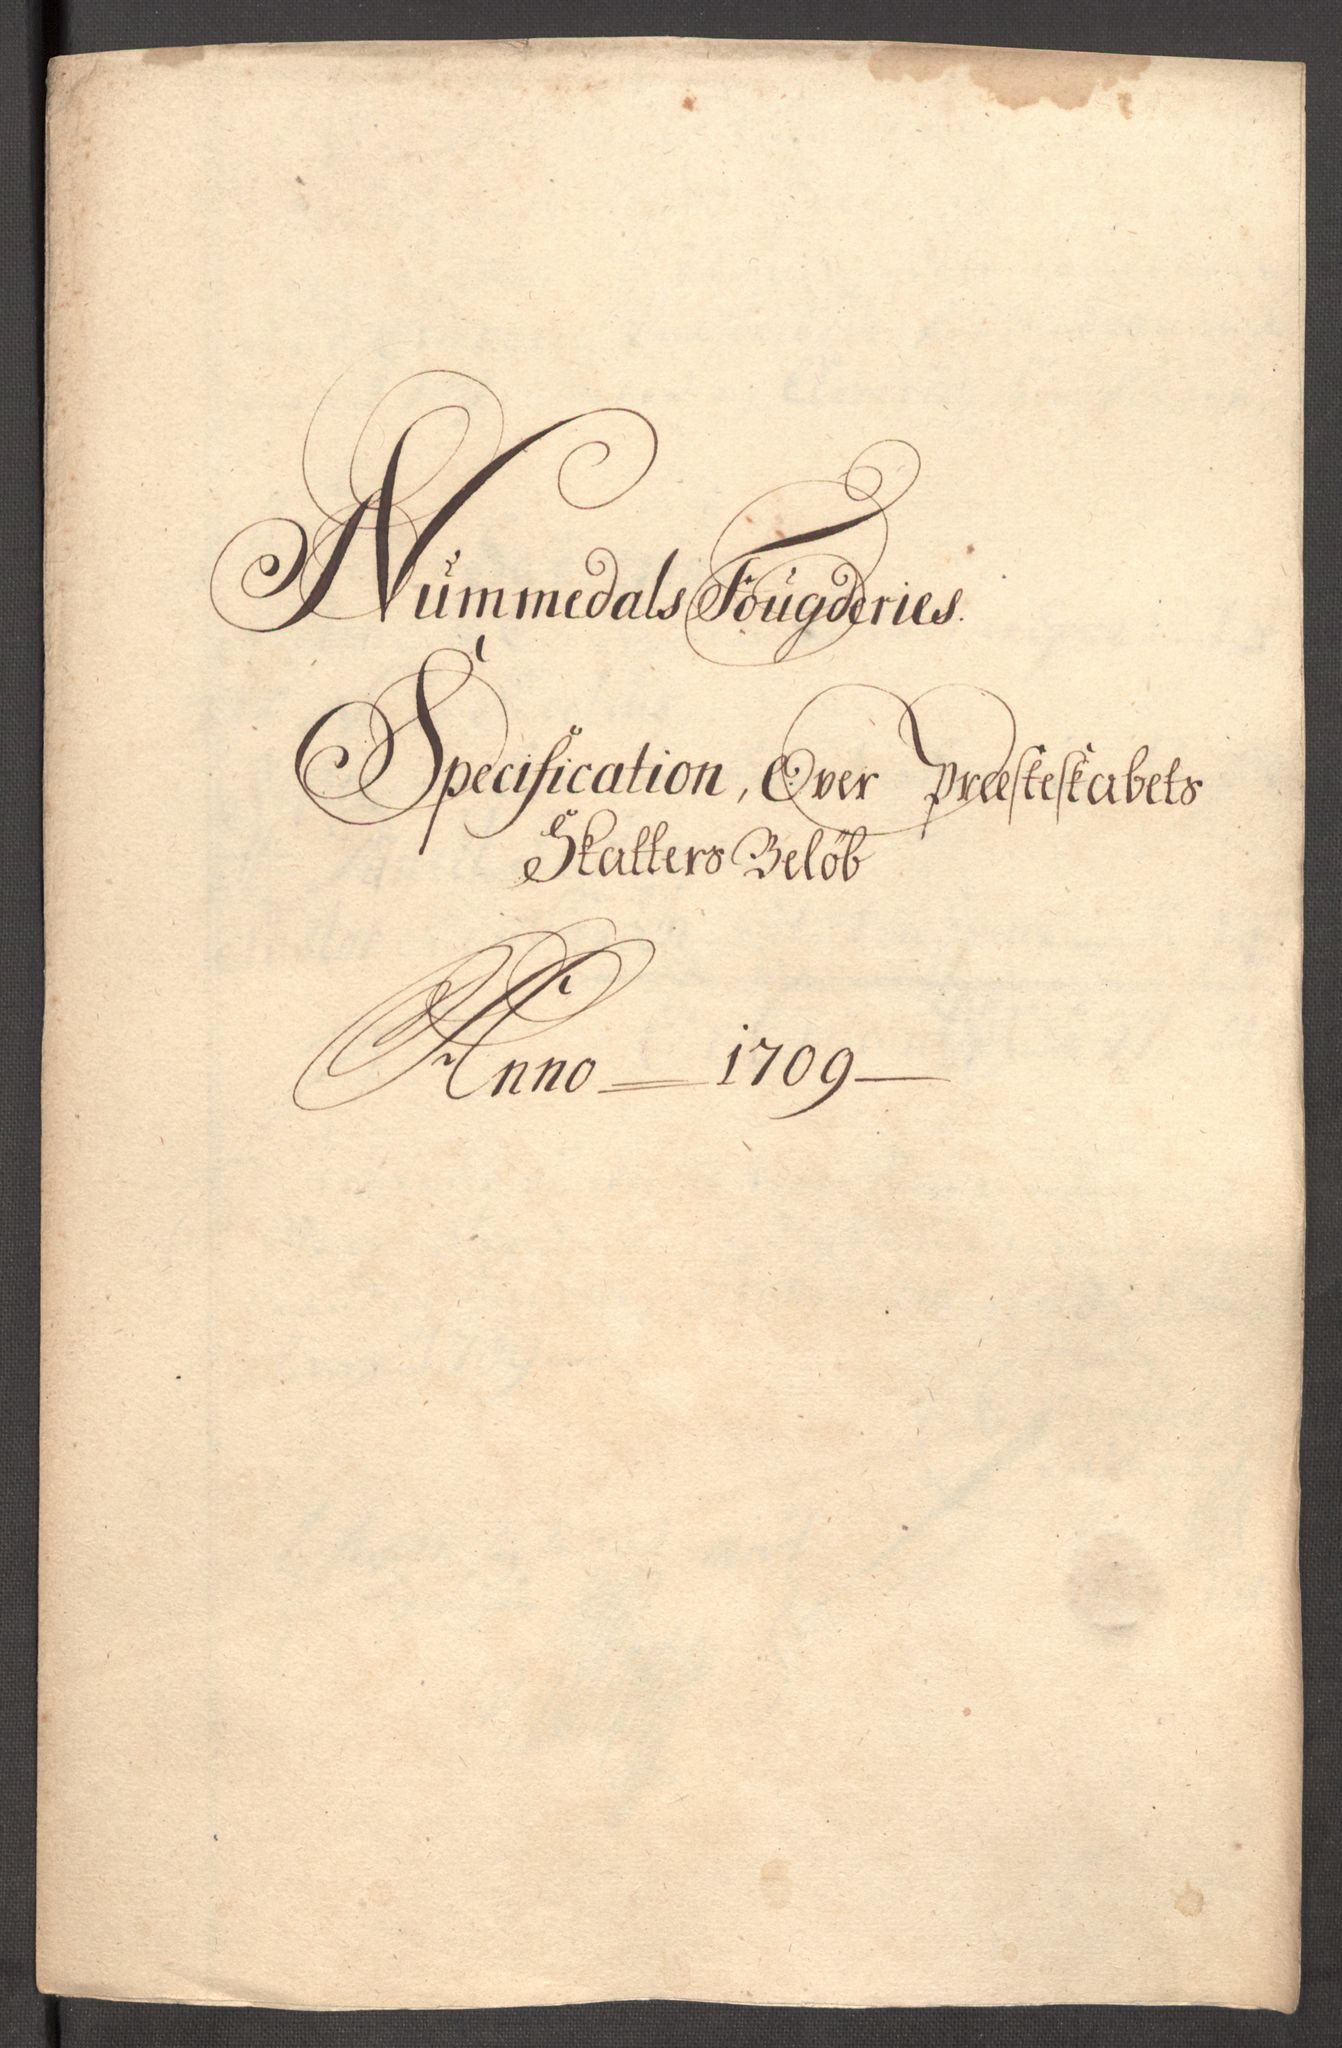 Nummedals Fougderies.
Specification, Over Præsteskabets
Skatters Beløb
Anno 1709